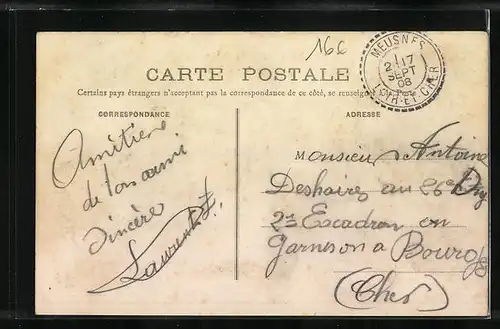 166
MEUSNES
17
SEPT
08
LOIR-ET-CHER
CARTE POSTALE
Certains pays étrangers n'acceptant pas la correspondance de ce côté, se renseigner à la Poste
CORRESPONDANCE
ADRESSE
Amitiers
de ton ami
sincère
Laurent
Monsieur Antoine
Deshaires au 26e
2e Escadron en
Garnison a Bourges
(Cher)